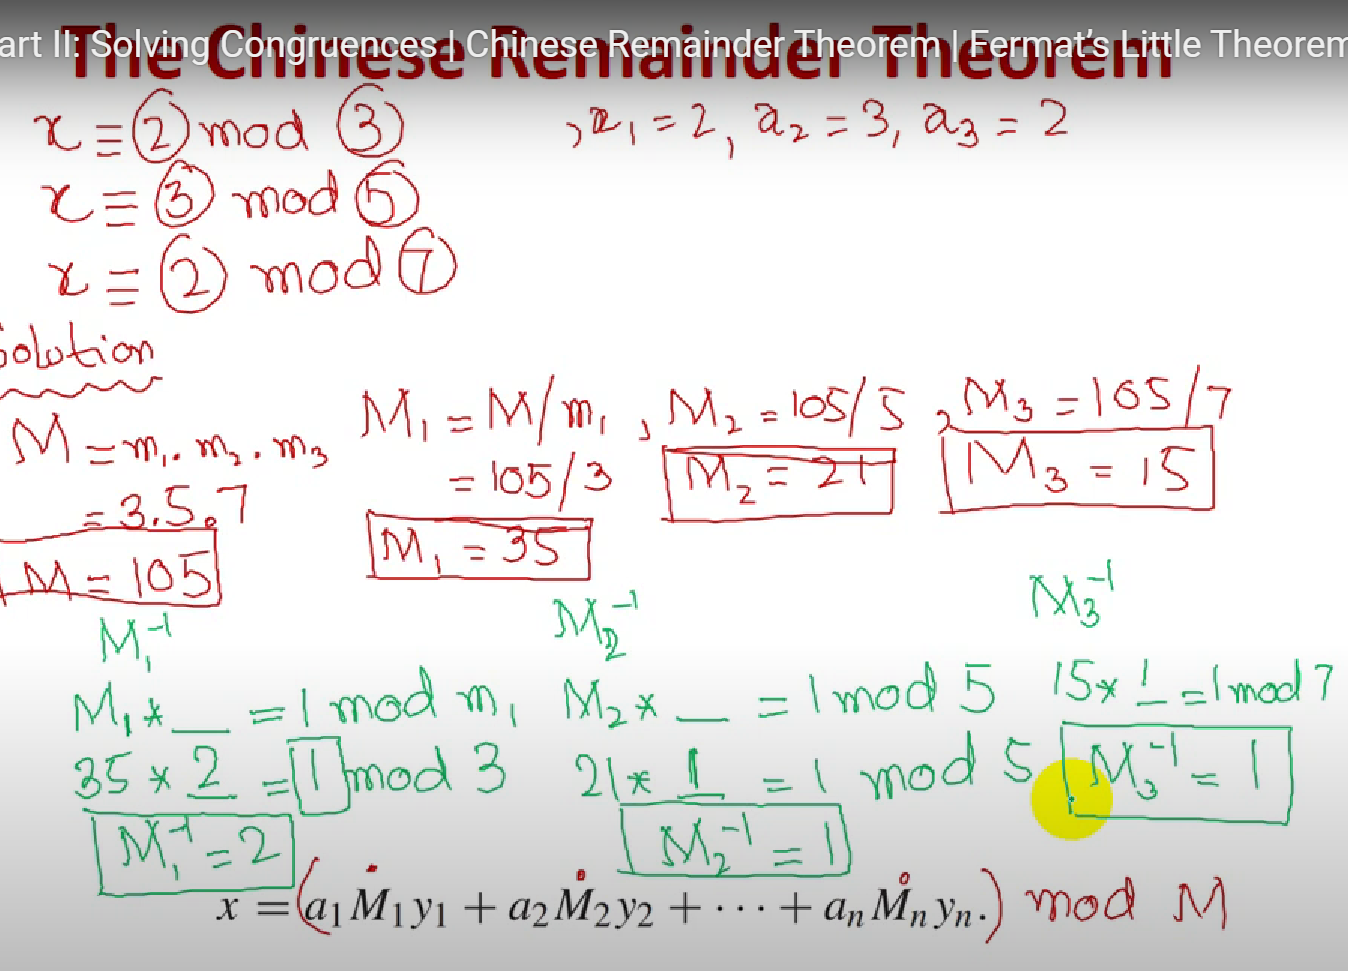 art II: Solving Congruences | Chinese Remainder Theorem | Fermat's Little Theorem
The Chinese Remainder Theorem
x ≡ 2 mod 3 , a₁ = 2, a₂ = 3, a₃ = 2
x ≡ 3 mod 5
x ≡ 2 mod 7
Solution
M = m₁. m₂. m₃
= 3.5.7
M = 105
M₁ = M/m₁
= 105/3
M₁ = 35
, M₂ = 105/5
M₂ = 21
, M₃ = 105/7
M₃ = 15
M₁⁻¹
M₁ * _ = 1 mod m₁
35 * 2 = 1 mod 3
M₁⁻¹ = 2
M₂⁻¹
M₂ * _ = 1 mod 5
21 * 1 = 1 mod 5
M₂⁻¹ = 1
M₃⁻¹
15 * 1 = 1 mod 7
M₃⁻¹ = 1
x = (a₁M₁y₁ + a₂M₂y₂ + · · · + aₙMₙyₙ.) mod M